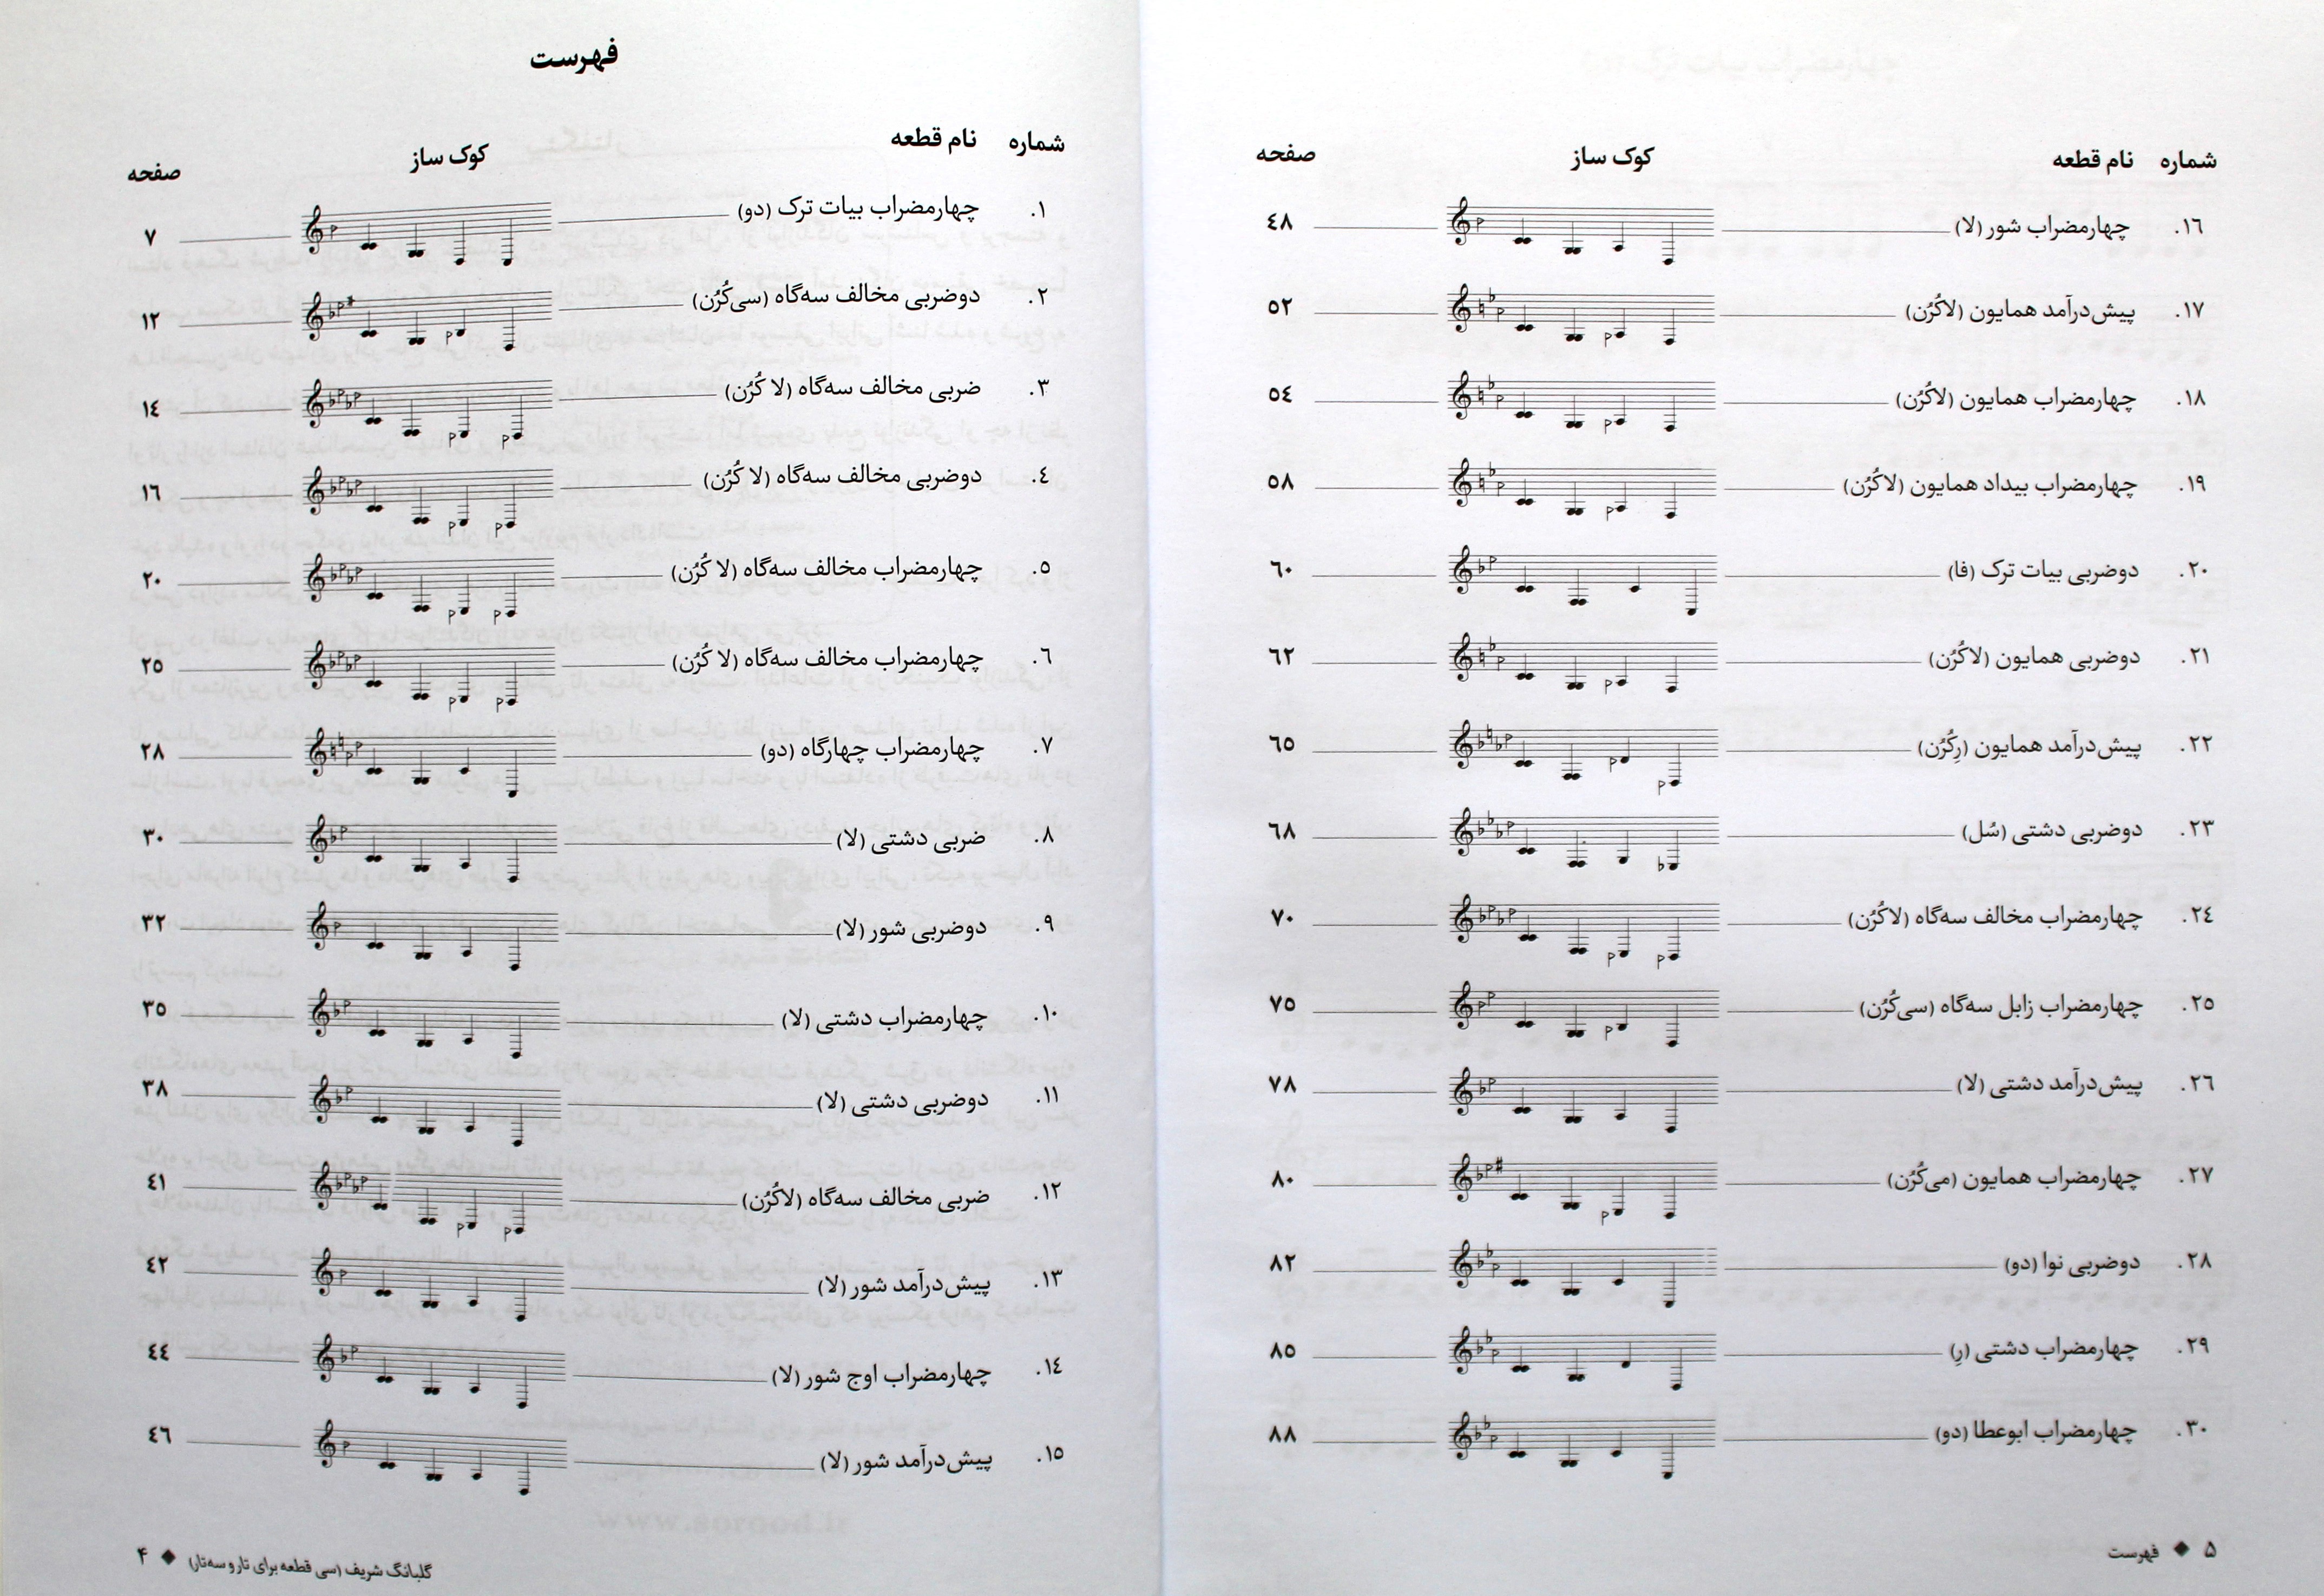 فهرست
شماره نام قطعه کوک ساز صفحه
۱. چهارمضراب بیات ترک (دو) ۷
۲. دوضربی مخالف سه‌گاه (سی‌کُرُن) ۱۲
۳. ضربی مخالف سه‌گاه (لا کُرُن) ۱٤
٤. دوضربی مخالف سه‌گاه (لا کُرُن) ۱٦
٥. چهارمضراب مخالف سه‌گاه (لا کُرُن) ۲۰
٦. چهارمضراب مخالف سه‌گاه (لا کُرُن) ۲٥
۷. چهارمضراب چهارگاه (دو) ۲۸
۸. ضربی دشتی (لا) ۳۰
۹. دوضربی شور (لا) ۳۲
۱۰. چهارمضراب دشتی (لا) ۳٥
۱۱. دوضربی دشتی (لا) ۳۸
۱۲. ضربی مخالف سه‌گاه (لاکُرُن) ٤۱
۱۳. پیش‌درآمد شور (لا) ٤۲
۱٤. چهارمضراب اوج شور (لا) ٤٤
۱٥. پیش‌درآمد شور (لا) ٤٦
گلبانگ شریف (سی قطعه برای تار و سه‌تار) ◆ ۴
شماره نام قطعه کوک ساز صفحه
۱٦. چهارمضراب شور (لا) ٤۸
۱۷. پیش‌درآمد همایون (لاکُرُن) ٥۲
۱۸. چهارمضراب همایون (لاکُرُن) ٥٤
۱۹. چهارمضراب بیداد همایون (لاکُرُن) ٥۸
۲۰. دوضربی بیات ترک (فا) ٦۰
۲۱. دوضربی همایون (لاکُرُن) ٦۲
۲۲. پیش‌درآمد همایون (رِکُرُن) ٦٥
۲۳. دوضربی دشتی (سُل) ٦۸
۲٤. چهارمضراب مخالف سه‌گاه (لاکُرُن) ۷۰
۲٥. چهارمضراب زابل سه‌گاه (سی‌کُرُن) ۷٥
۲٦. پیش‌درآمد دشتی (لا) ۷۸
۲۷. چهارمضراب همایون (می‌کُرُن) ۸۰
۲۸. دوضربی نوا (دو) ۸۲
۲۹. چهارمضراب دشتی (رِ) ۸٥
۳۰. چهارمضراب ابوعطا (دو) ۸۸
۵ ◆ فهرست